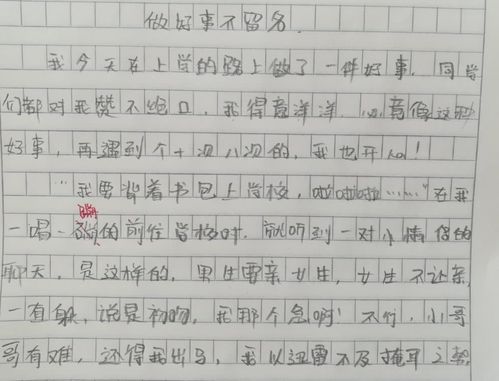 做好事不留名.
我今天在上学的路上做了一件好事.同学
们都对我赞不绝口,我得意洋洋.心意像这种
好事,再遇到个十次八次的,我也开心!
"我要背着书包上学校,啦啦啦啦……"在我
一唱一蹦的前往学校时,就听到一对小情侣的
聊天,是这样的,男生要亲女生,女生不让亲,
一有躲,说是初吻,我那个急啊!不行,小哥
哥有难,还得我出马,我以迅雷不及掩耳之势